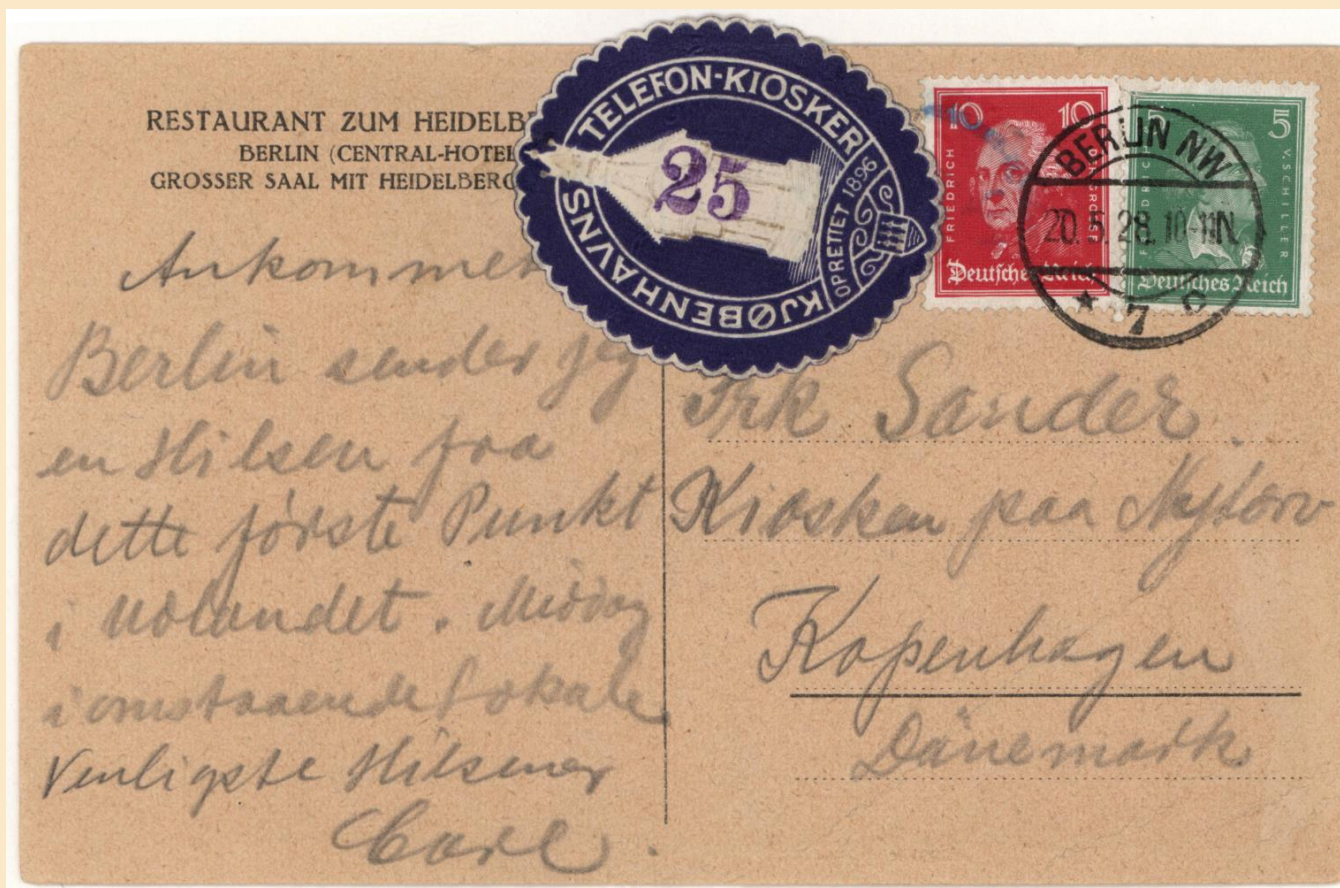 RESTAURANT ZUM HEIDELB
BERLIN (CENTRAL-HOTEL
GROSSER SAAL MIT HEIDELBERG
KJØBENHAVNS TELEFON-KIOSKER
OPRETTET 1896
25
10 10
FRIEDRICH
Deutsches Reich
5
V. SCHILLER
Deutsches Reich
BERLIN NW
20.5.28.10-11N.
* 7 c
Ankommet
Berlin sender jeg
en Hilsen fra
dette første Punkt
i Udlandet. Middag
i omstaaende Lokale
Venligste Hilsener
Carl.
Frk Sander.
Kiosken paa Nytorv
Kopenhagen
Dänemark